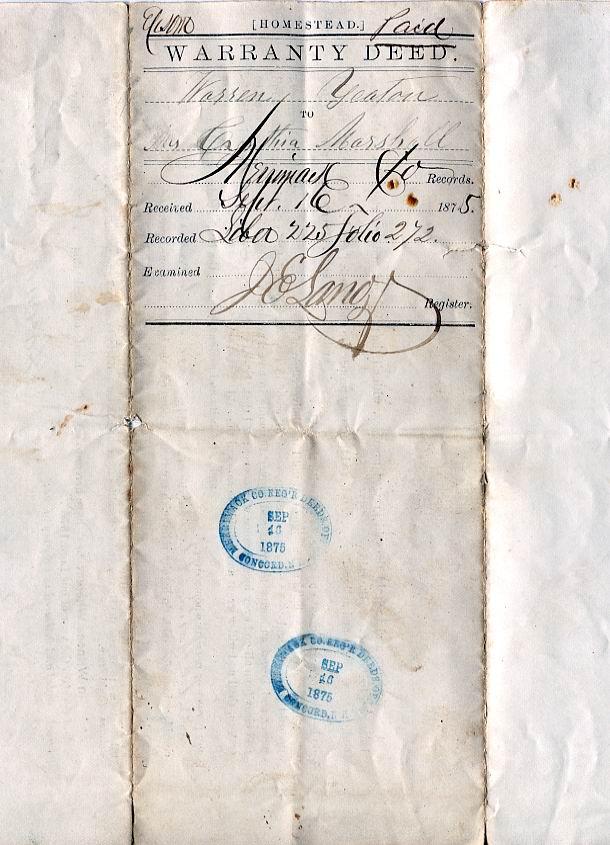 Epsom [HOMESTEAD.] Paid
WARRANTY DEED.
Warren Yeaton
TO
Mrs Cynthia Marshall
Merrimack Co Records.
Received Sept. 16 1875.
Recorded Liber 225 folio 272.
Examined
J E Lang Register.
MERRIMACK CO. REG'R DEEDS OF
SEP
16
1875
CONCORD, N.
MERRIMACK CO. REG'R DEEDS OF
SEP
16
1875
CONCORD, N.